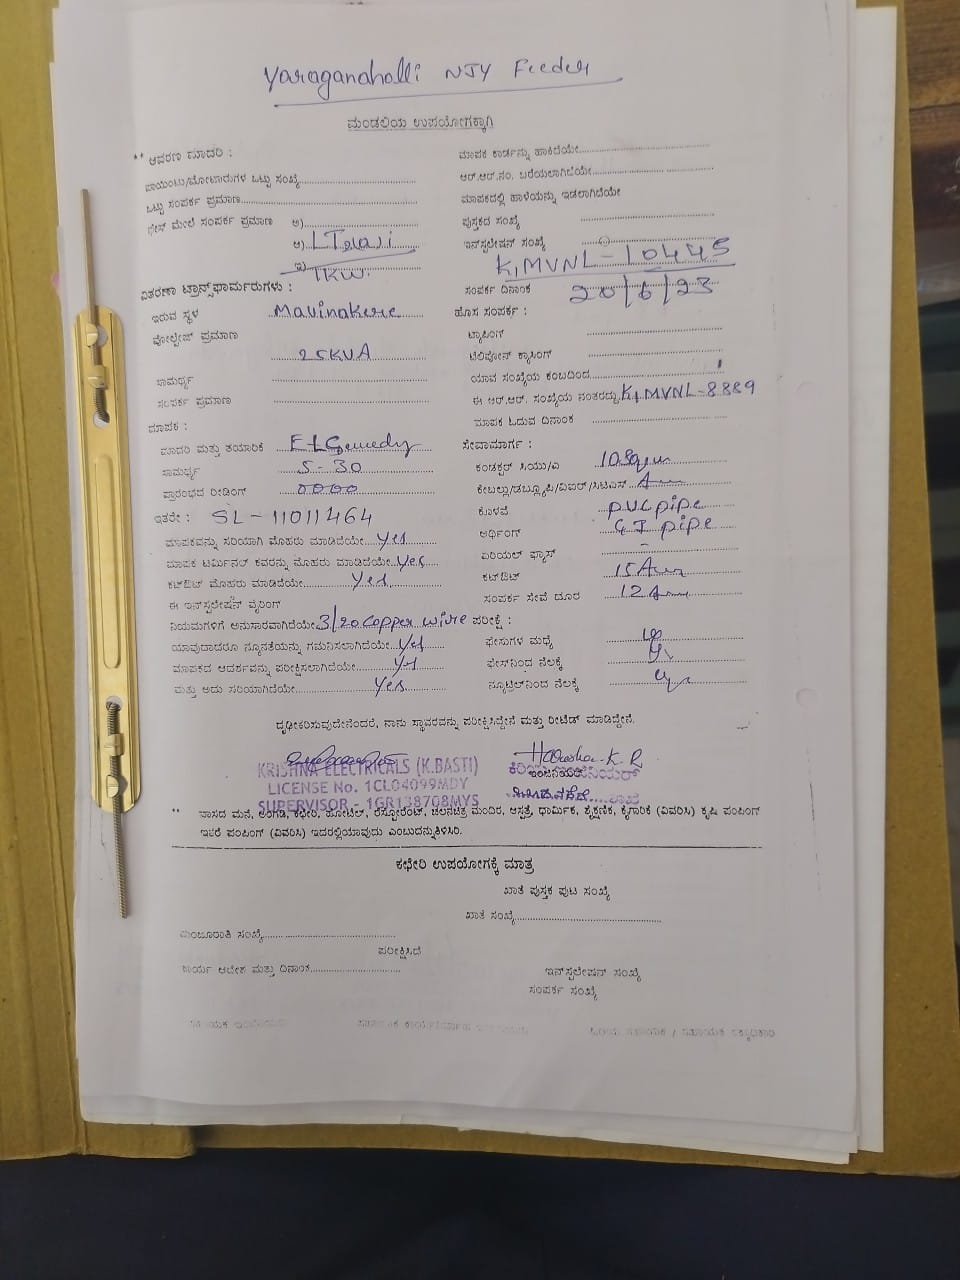 Yaraganahalli NJY Feeder
ಮಂಡಲಿಯ ಉಪಯೋಗಕ್ಕಾಗಿ
** ಆವರಣ ಮಾದರಿ :
ಪಾಯಿಂಟು/ಮೋಟಾರುಗಳ ಒಟ್ಟು ಸಂಖ್ಯೆ
ಒಟ್ಟು ಸಂಪರ್ಕ ಪ್ರಮಾಣ
ಫೇಸ್ ಮೇಲೆ ಸಂಪರ್ಕ ಪ್ರಮಾಣ ಅ)
ಆ)
ಇ) 1KW
ವಿತರಣಾ ಟ್ರಾನ್ಸ್‌ಫಾರ್ಮರುಗಳು :
ಇರುವ ಸ್ಥಳ Mavinakere
ವೋಲ್ಟೇಜ್ ಪ್ರಮಾಣ
25KVA
ಸಾಮರ್ಥ್ಯ
ಸಂಪರ್ಕ ಪ್ರಮಾಣ
ಮಾಪಕ :
ಮಾದರಿ ಮತ್ತು ತಯಾರಿಕೆ
ಸಾಮರ್ಥ್ಯ 5-30
ಪ್ರಾರಂಭದ ರೀಡಿಂಗ್ 0000
ಇತರೇ : SL-11011464
ಮಾಪಕವನ್ನು ಸರಿಯಾಗಿ ಮೊಹರು ಮಾಡಿದೆಯೇ yes
ಮಾಪಕ ಟರ್ಮಿನಲ್ ಕವರನ್ನು ಮೊಹರು ಮಾಡಿದೆಯೇ yes
ಕಟ್‌ಔಟ್ ಮೊಹರು ಮಾಡಿದೆಯೇ yes
ಈ ಇನ್‌ಸ್ಟಲೇಷನ್ ವೈರಿಂಗ್
ನಿಯಮಗಳಿಗೆ ಅನುಸಾರವಾಗಿದೆಯೇ 3/20 Copper wire
ಯಾವುದಾದರೂ ನ್ಯೂನತೆಯನ್ನು ಗಮನಿಸಲಾಗಿದೆಯೇ yes
ಮಾಪಕದ ಆದರ್ಶವನ್ನು ಪರೀಕ್ಷಿಸಲಾಗಿದೆಯೇ yes
ಮತ್ತು ಅದು ಸರಿಯಾಗಿದೆಯೇ yes
ಮಾಪಕ ಕಾರ್ಡನ್ನು ಹಾಕಿದೆಯೇ
ಆರ್.ಆರ್.ನಂ. ಬರೆಯಲಾಗಿದೆಯೇ
ಮಾಪಕದಲ್ಲಿ ಹಾಳೆಯನ್ನು ಇಡಲಾಗಿದೆಯೇ
ಪುಸ್ತಕದ ಸಂಖ್ಯೆ
ಇನ್‌ಸ್ಟಲೇಷನ್ ಸಂಖ್ಯೆ
K1MVNL-10445
ಸಂಪರ್ಕ ದಿನಾಂಕ 20/6/23
ಹೊಸ ಸಂಪರ್ಕ :
ಟ್ಯಾಪಿಂಗ್
ಟೆಲಿಫೋನ್ ಕ್ರಾಸಿಂಗ್
ಯಾವ ಸಂಖ್ಯೆಯ ಕಂಬದಿಂದ
ಈ ಆರ್.ಆರ್. ಸಂಖ್ಯೆಯ ನಂತರದ್ದು K1MVNL-8889
ಮಾಪಕ ಓದುವ ದಿನಾಂಕ
ಸೇವಾಮಾರ್ಗ :
ಕಂಡಕ್ಟರ್ ಸಿಯು/ಎ
ಕೇಬಲ್ಲು/ಡಬ್ಲ್ಯೂಪಿ/ವಿಐಆರ್/ಸಿಟಿಎಸ್
ಕೊಳವೆ PVC pipe
ಅರ್ಥಿಂಗ್ GI pipe
ಏರಿಯಲ್ ಫ್ಯೂಸ್ -
ಕಟ್‌ಔಟ್
ಸಂಪರ್ಕ ಸೇವೆ ದೂರ
ಪರೀಕ್ಷೆ :
ಫೇಸುಗಳ ಮಧ್ಯೆ
ಫೇಸ್‌ನಿಂದ ನೆಲಕ್ಕೆ
ನ್ಯೂಟ್ರಲ್‌ನಿಂದ ನೆಲಕ್ಕೆ
ದೃಢೀಕರಿಸುವುದೇನೆಂದರೆ, ನಾನು ಸ್ಥಾವರವನ್ನು ಪರೀಕ್ಷಿಸಿದ್ದೇನೆ ಮತ್ತು ರೀಟೆಡ್ ಮಾಡಿದ್ದೇನೆ.
KRISHNA ELECTRICALS (K.BASTI)
LICENSE No. 1CL04099MDY
SUPERVISOR - 1GR138708MYS
Harsha K. R
ಇಂಜಿನಿಯರ್
** ವಾಸದ ಮನೆ, ಅಂಗಡಿ, ಕಛೇರಿ, ಹೋಟೆಲ್, ರೆಸ್ಟೋರೆಂಟ್, ಚಲನಚಿತ್ರ ಮಂದಿರ, ಆಸ್ಪತ್ರೆ, ಧಾರ್ಮಿಕ, ಶೈಕ್ಷಣಿಕ, ಕೈಗಾರಿಕೆ (ವಿವರಿಸಿ) ಕೃಷಿ ಪಂಪಿಂಗ್
ಇತರೆ ಪಂಪಿಂಗ್ (ವಿವರಿಸಿ) ಇದರಲ್ಲಿಯಾವುದು ಎಂಬುದನ್ನುತಿಳಿಸಿರಿ.
ಕಛೇರಿ ಉಪಯೋಗಕ್ಕೆ ಮಾತ್ರ
ಖಾತೆ ಪುಸ್ತಕ ಪುಟ ಸಂಖ್ಯೆ
ಖಾತೆ ಸಂಖ್ಯೆ
ಮಂಜೂರಾತಿ ಸಂಖ್ಯೆ
ಪರೀಕ್ಷಿಸಿದೆ
ಕಾರ್ಯ ಆದೇಶ ಮತ್ತು ದಿನಾಂಕ
ಇನ್‌ಸ್ಟಲೇಷನ್ ಸಂಖ್ಯೆ
ಸಂಪರ್ಕ ಸಂಖ್ಯೆ